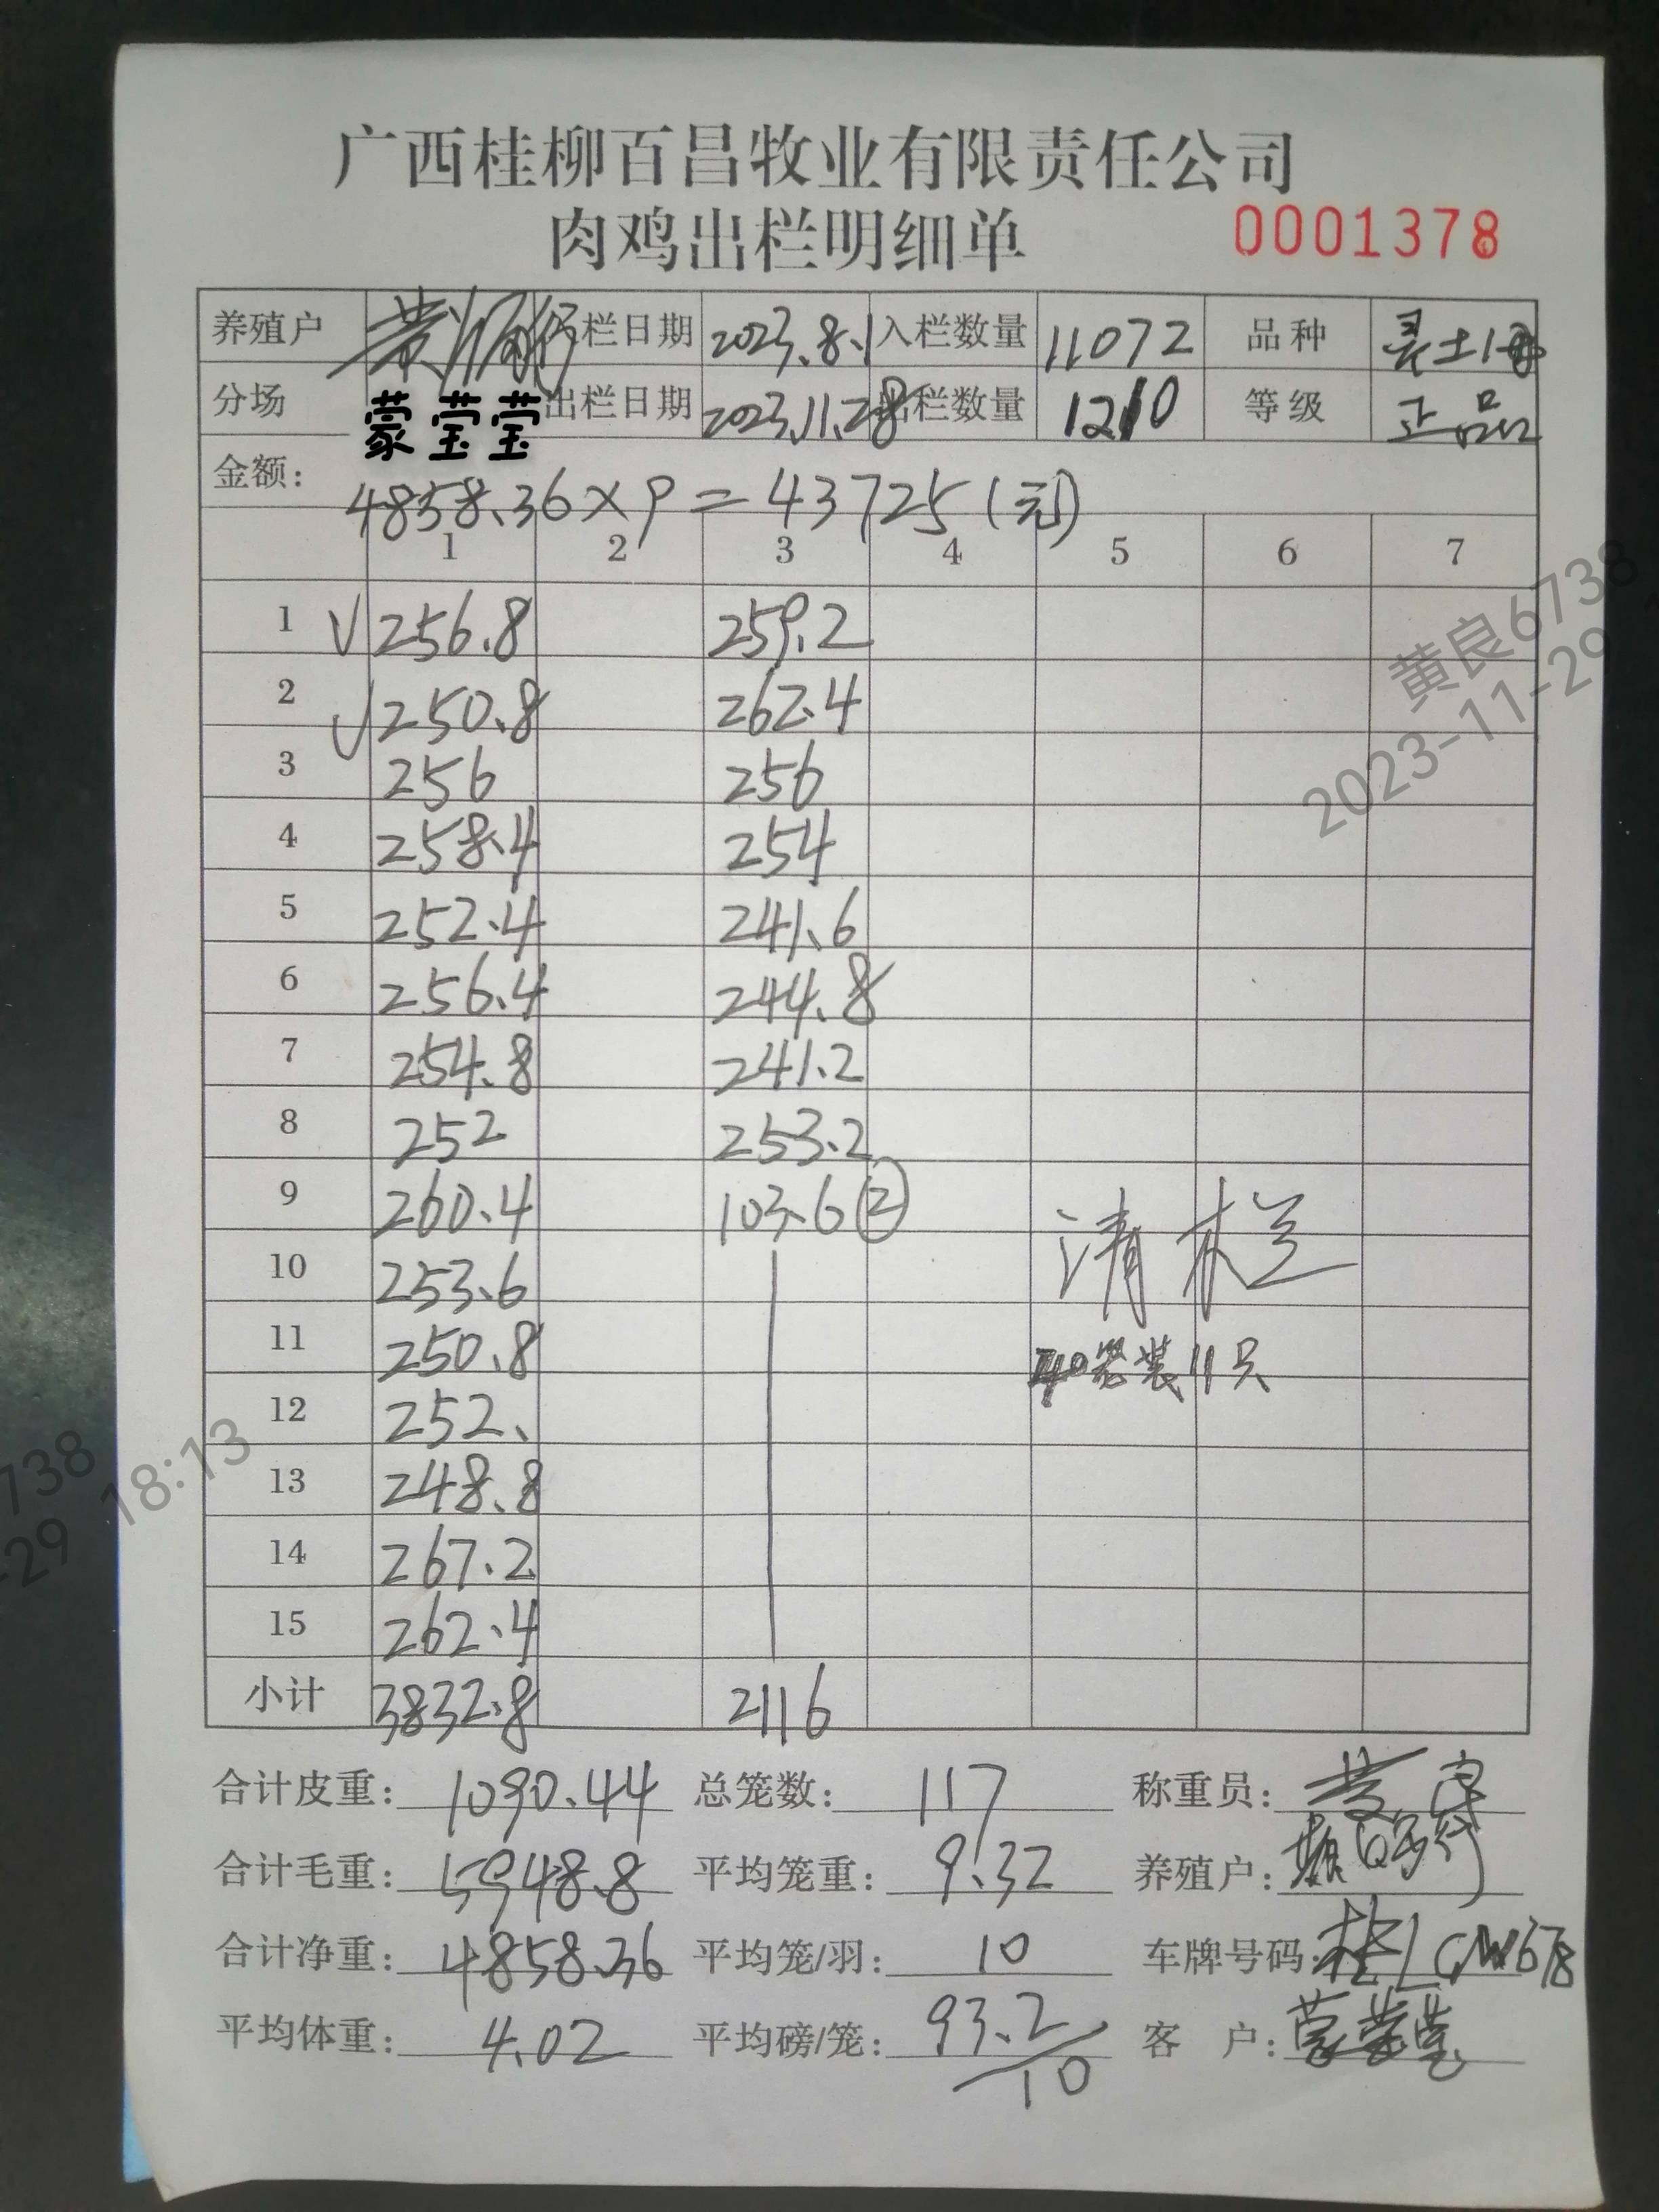 广西桂柳百昌牧业有限责任公司
肉鸡出栏明细单 0001378
养殖户 栏日期 2023.8.1 入栏数量 11072 品种 灵土1号
分场 蒙莹莹 出栏日期 2023.11.28 出栏数量 1210 等级 正品
金额: 4858.36×9=43725(元)
1 2 3 4 5 6 7
1 √ 256.8 259.2
2 √ 250.8 262.4
3 256 256
4 258.4 254
5 252.4 241.6
6 256.4 244.8
7 254.8 241.2
8 252 253.2
9 260.4 103.6 ② 清栏
10 253.6
11 250.8 40笼装11只
12 252.
13 248.8
14 267.2
15 262.4
小计 3832.8 2116
合计皮重: 1090.44 总笼数: 117 称重员: 黄良
合计毛重: 5948.8 平均笼重: 9.32 养殖户:
合计净重: 4858.36 平均笼/羽: 10 车牌号码:
平均体重: 4.02 平均磅/笼: 93.2/10 客 户: 蒙莹莹
黄良6738
2023-11-29
738
18:13
-29